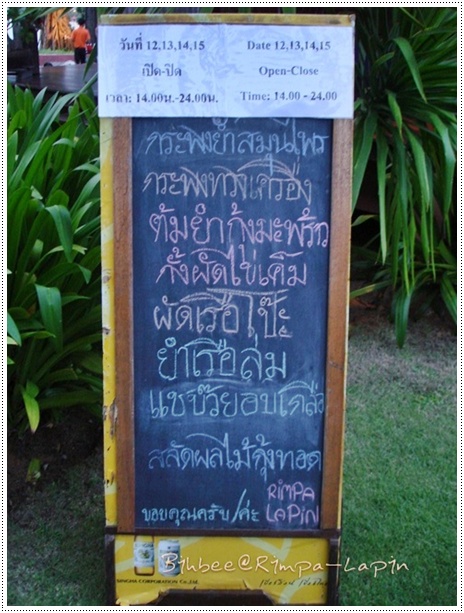 วันที่ 12,13,14,15
เปิด-ปิด
เวลา: 14.00น.-24.00น.
Date 12,13,14,15
Open-Close
Time: 14.00 - 24.00
กระพงยำสมุนไพร
กระพงทรงเครื่อง
ต้มยำกุ้งมะพร้าว
กั้งผัดไข่เค็ม
ผัดเรือโป๊ะ
ยำเรือล่ม
แชบ๊วยอบเกลือ
สลัดผลไม้กุ้งทอด
ขอบคุณครับ/ค่ะ
RimPA
LAPiN
Bihbee@Rimpa-Lapin
SINGHA CORPORATION Co.,Ltd.